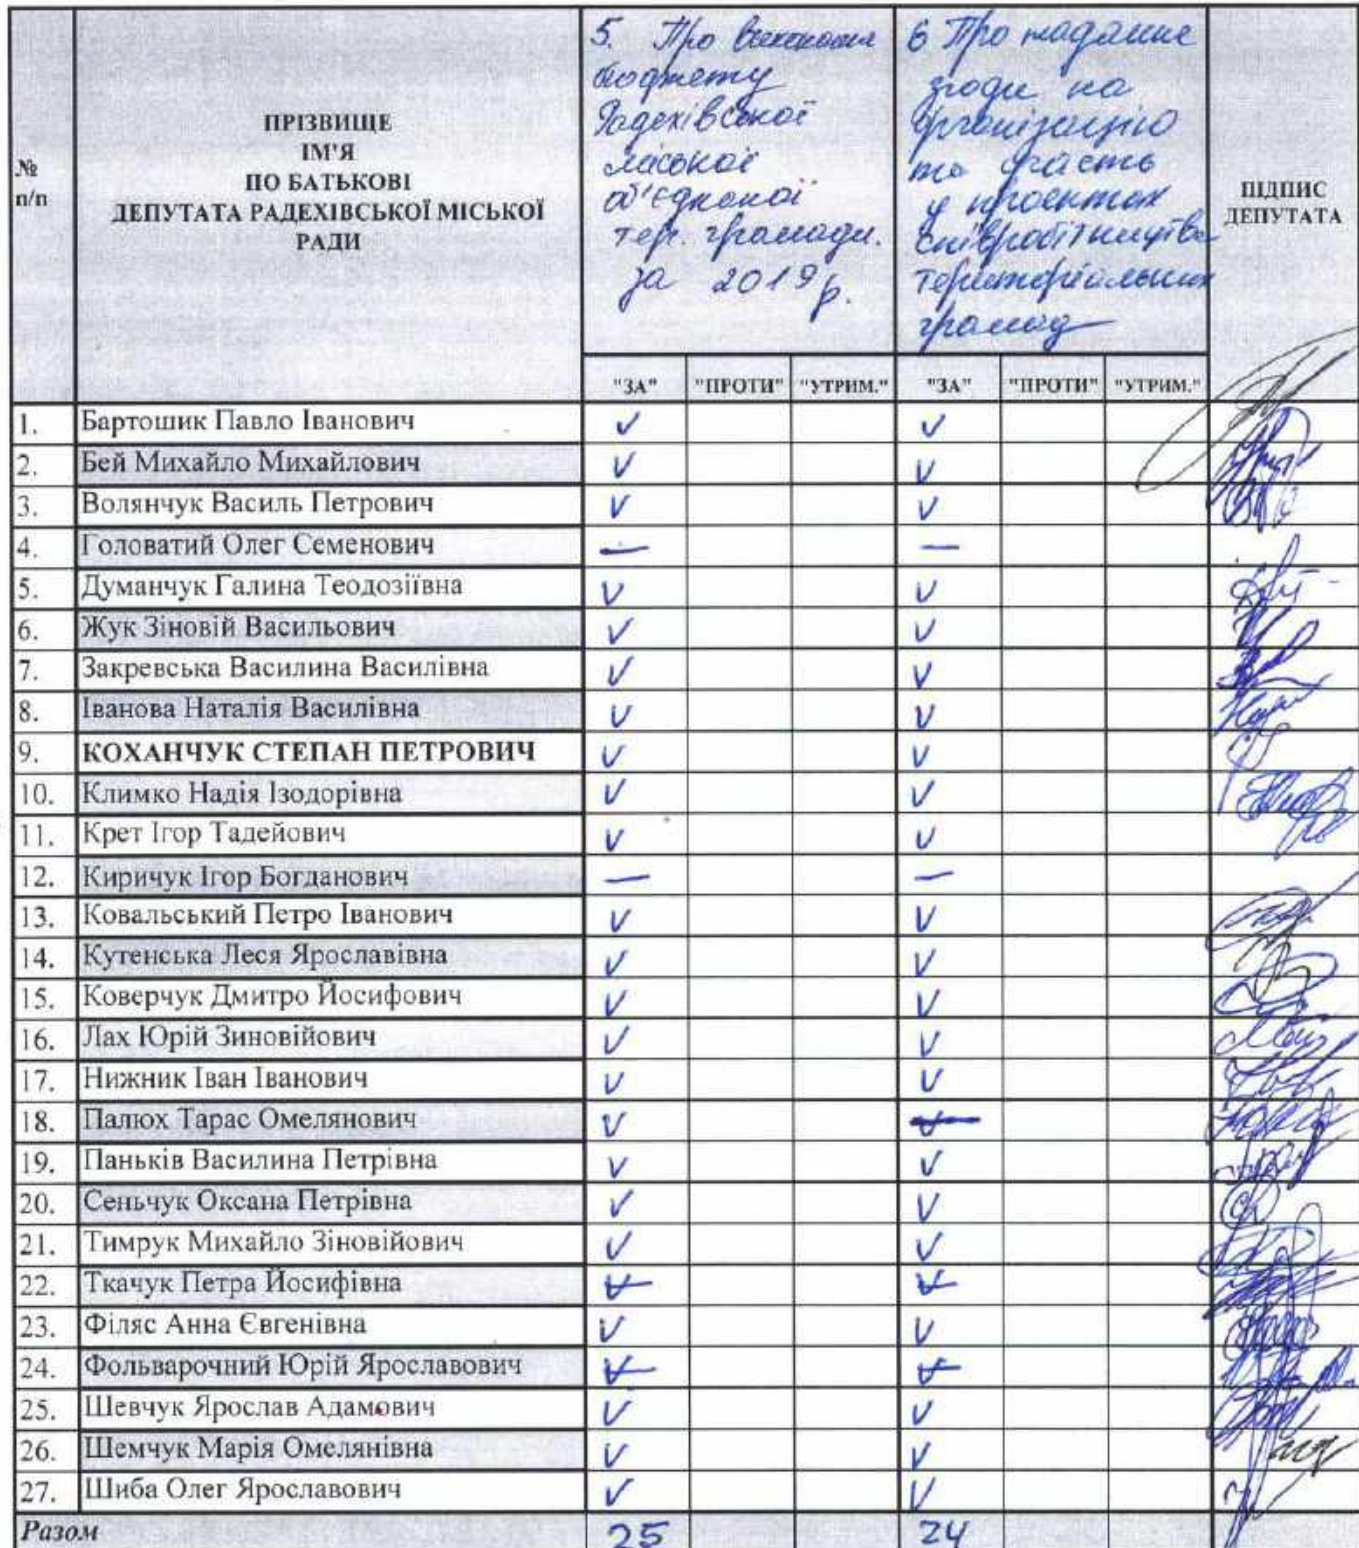 №
п/п
ПРІЗВИЩЕ
ІМ'Я
ПО БАТЬКОВІ
ДЕПУТАТА РАДЕХІВСЬКОЇ МІСЬКОЇ
РАДИ
5. Про виконання
бюджету
Радехівської
міської
об'єднаної
тер. громади.
за 2019 р.
6 Про надання
згоди на
організацію
та участь
у проектах
співробітництва
територіальних
громад
ПІДПИС
ДЕПУТАТА
"ЗА" "ПРОТИ" "УТРИМ." "ЗА" "ПРОТИ" "УТРИМ."
1. Бартошик Павло Іванович V V
2. Бей Михайло Михайлович V V
3. Волянчук Василь Петрович V V
4. Головатий Олег Семенович — —
5. Думанчук Галина Теодозіївна V V
6. Жук Зіновій Васильович V V
7. Закревська Василина Василівна V V
8. Іванова Наталія Василівна V V
9. КОХАНЧУК СТЕПАН ПЕТРОВИЧ V V
10. Климко Надія Ізодорівна V V
11. Крет Ігор Тадейович V V
12. Киричук Ігор Богданович — —
13. Ковальський Петро Іванович V V
14. Кутенська Леся Ярославівна V V
15. Коверчук Дмитро Йосифович V V
16. Лах Юрій Зиновійович V V
17. Нижник Іван Іванович V V
18. Палюх Тарас Омелянович V
19. Паньків Василина Петрівна V V
20. Сеньчук Оксана Петрівна V V
21. Тимрук Михайло Зіновійович V V
22. Ткачук Петра Йосифівна V V
23. Філяс Анна Євгенівна V V
24. Фольварочний Юрій Ярославович V V
25. Шевчук Ярослав Адамович V V
26. Шемчук Марія Омелянівна V V
27. Шиба Олег Ярославович V V
Разом 25 24